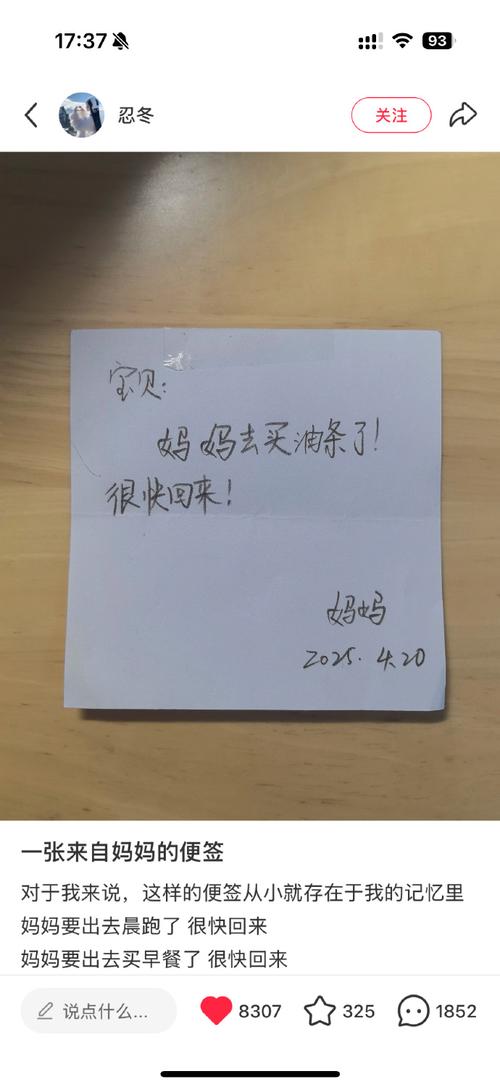 17:37
93
忍冬
关注
宝贝:
妈妈去买油条了!
很快回来!
妈妈
2025.4.20
一张来自妈妈的便签
对于我来说，这样的便签从小就存在于我的记忆里
妈妈要出去晨跑了 很快回来
妈妈要出去买早餐了 很快回来
说点什么...
8307
325
1852